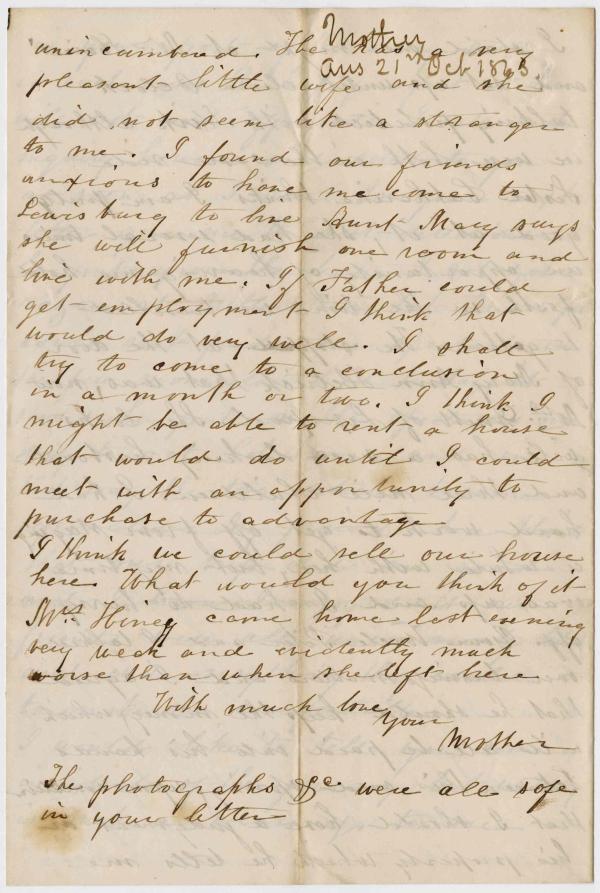 Mother
Ans 21st Oct 1863.
unincumbered. He has a very
pleasant little wife and she
did not seem like a stranger
to me. I found our friends
anxious to have me come to
Lewisburg to live Aunt Mary says
she will furnish one room and
live with me. If Father could
get employment I think that
would do very well. I shall
try to come to a conclusion
in a month or two. I think I
might be able to rent a house
that would do until I could
meet with an opportunity to
purchase to advantage
I think we could sell our house
here What would you think of it
Mrs. came home last evening
very weak and evidently much
worse than when she left here
With much love
Your
Mother
The photographs &c were all safe
in your letter